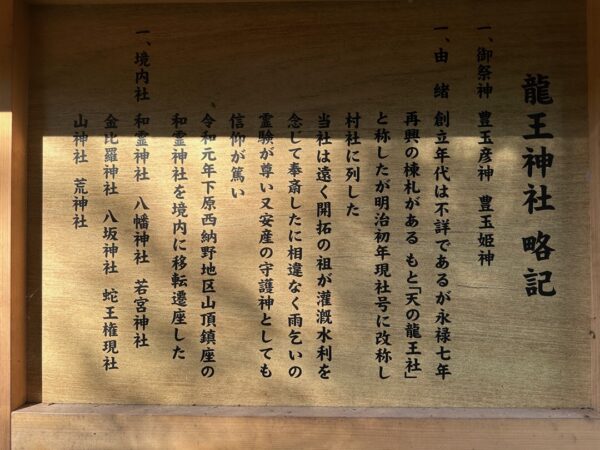 龍王神社 略記
一、御祭神 豊玉彦神 豊玉姫神
一、由 緒 創立年代は不詳であるが永禄七年
再興の棟札がある もと「天の龍王社」
と称したが明治初年現社号に改称し
村社に列した
当社は遠く開拓の祖が灌漑水利を
念じて奉斎したに相違なく雨乞いの
霊験が尊い又安産の守護神としても
信仰が篤い
、令和元年下原西納野地区山頂鎮座の
和霊神社を境内に移転遷座した
一、境内社 和霊神社 八幡神社 若宮神社
金比羅神社 八坂神社 蛇王権現社
山神社 荒神社